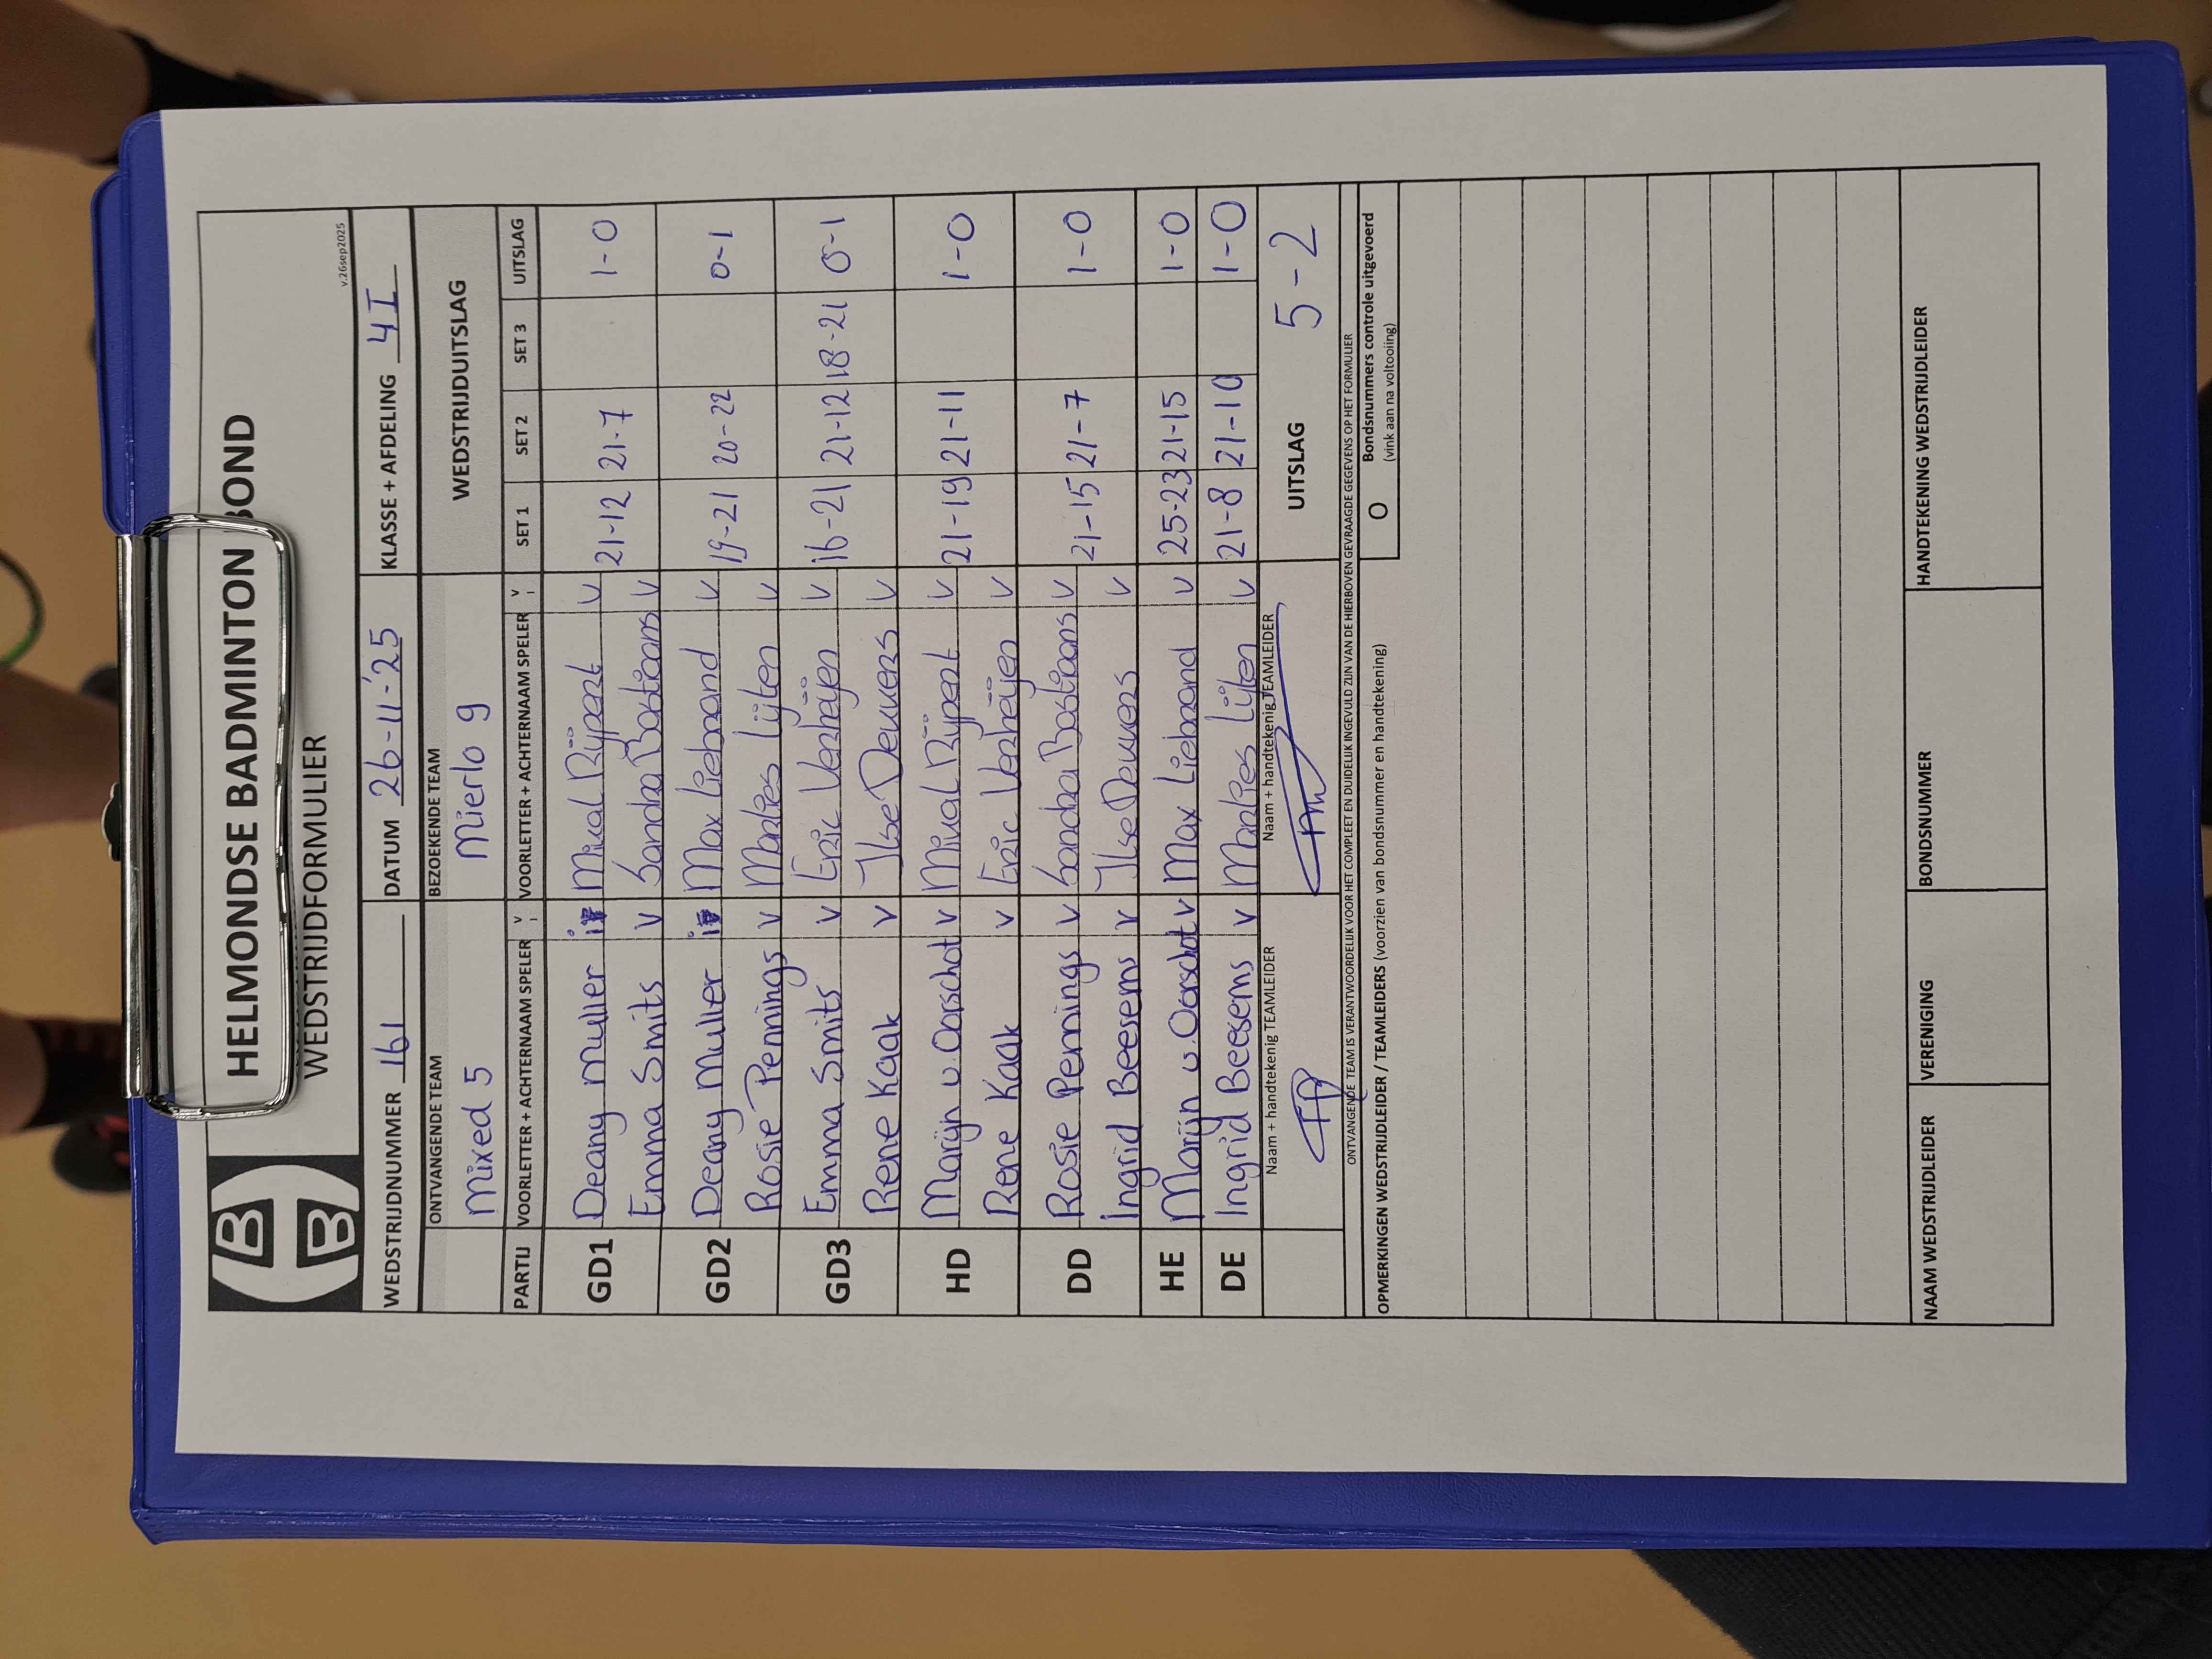 HELMONDSE BADMINTON BOND
WEDSTRIJDFORMULIER
v.26sep2025
WEDSTRIJDNUMMER 161 DATUM 26-11-'25 KLASSE + AFDELING 4I
ONTVANGENDE TEAM BEZOEKENDE TEAM WEDSTRIJDUITSLAG
Mixed 5 Mierlo 9
PARTIJ VOORLETTER + ACHTERNAAM SPELER V VOORLETTER + ACHTERNAAM SPELER V SET 1 SET 2 SET 3 UITSLAG
GD1 Deany Muller Rijpert V 21-12 21-7 1-0
Emma Smits V Sandra Bastiaans V
GD2 Deany Muller Max Liebrand V 19-21 20-22 0-1
Rosie Pennings V Marlies Lijten V
GD3 Emma Smits V Eric Verheijen V 16-21 21-12 18-21 0-1
Rene Kaak V Ilse Deuvers V
HD Marijn v. Oorschot V Rijpert V 21-19 21-11 1-0
Rene Kaak V Eric Verheijen V
DD Rosie Pennings V Sandra Bastiaans V 21-15 21-7 1-0
Ingrid Beesems V Ilse Deuvers V
HE Marijn v. Oorschot V Max Liebrand V 25-23 21-15 1-0
DE Ingrid Beesems V Marlies Lijten V 21-8 21-10 1-0
Naam + handtekenig TEAMLEIDER Naam + handtekenig TEAMLEIDER UITSLAG 5-2
ONTVANGENDE TEAM IS VERANTWOORDELIJK VOOR HET COMPLEET EN DUIDELIJK INGEVULD ZIJN VAN DE HIERBOVEN GEVRAAGDE GEGEVENS OP HET FORMULIER
OPMERKINGEN WEDSTRIJDLEIDER / TEAMLEIDERS (voorzien van bondsnummer en handtekening) O Bondsnummers controle uitgevoerd
(vink aan na voltooiing)
NAAM WEDSTRIJDLEIDER VERENIGING BONDSNUMMER HANDTEKENING WEDSTRIJDLEIDER